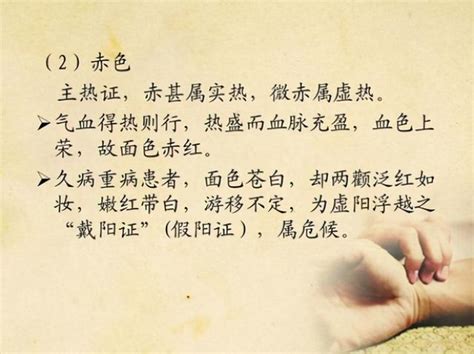 （2）赤色
主热证，赤甚属实热，微赤属虚热。
➢气血得热则行，热盛而血脉充盈，血色上
荣，故面色赤红。
➢久病重病患者，面色苍白，却两颧泛红如
妆，嫩红带白，游移不定，为虚阳浮越之
“戴阳证”(假阳证)，属危候。